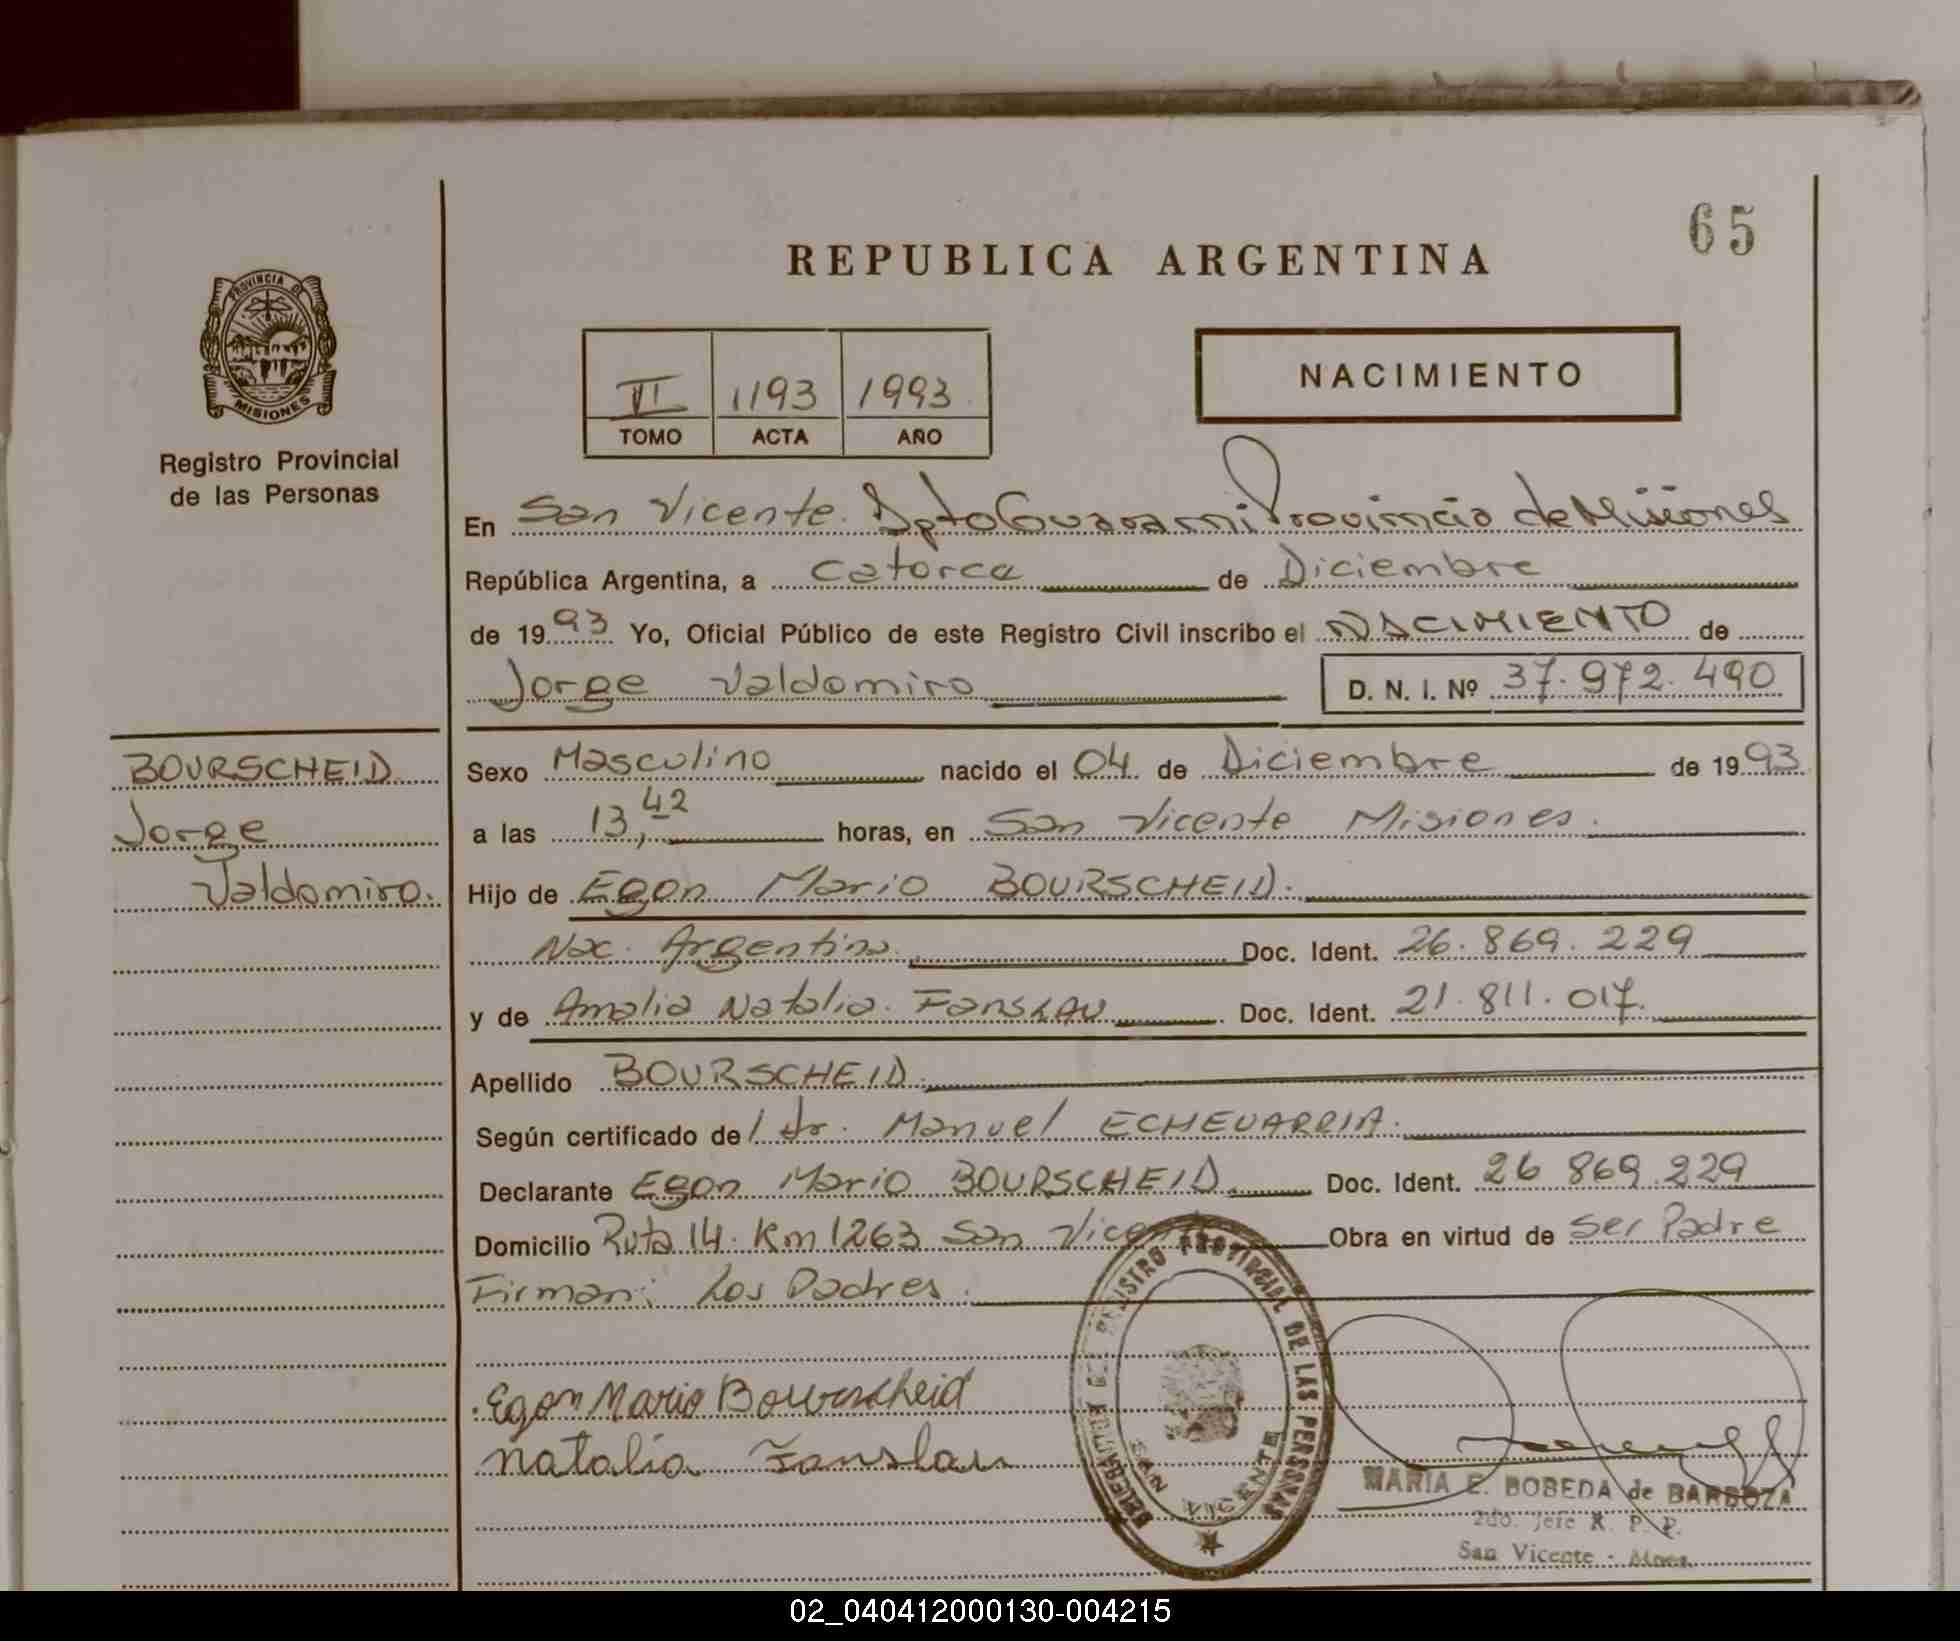 65
REPUBLICA ARGENTINA
PROVINCIA DE
MISIONES
Registro Provincial
de las Personas
II 1193 1993
TOMO ACTA AÑO
NACIMIENTO
En San Vicente Dpto Guarani Provincia de Misiones
República Argentina, a Catorce de Diciembre
de 1993 Yo, Oficial Público de este Registro Civil inscribo el NACIMIENTO de
Jorge Valdomiro D. N. I. Nº 37.972.490
BOURSCHEID
Jorge
Valdomiro.
Sexo Masculino nacido el 04 de Diciembre de 1993
a las 13,42 horas, en San Vicente Misiones.
Hijo de Egon Mario BOURSCHEID.
Nac. Argentina. Doc. Ident. 26.869.229
y de Amalia Natalia FansLAU Doc. Ident. 21.811.017.
Apellido BOURSCHEID.
Según certificado de/ Dr. Manuel ECHEVARRIA.
Declarante Egon Mario BOURSCHEID. Doc. Ident. 26 869.229
Domicilio Ruta 14. Km 1263 San Vicente Obra en virtud de Ser Padre
Firman: Los Padres.
Egon Mario Bourscheid
Natalia Fanslau
DELEGACION DEL REGISTRO PROVINCIAL DE LAS PERSONAS
SAN VICENTE
MARIA E. BOBEDA de BARBOZA
2do. Jefe R. P. P.
San Vicente - Mnes.
02_040412000130-004215